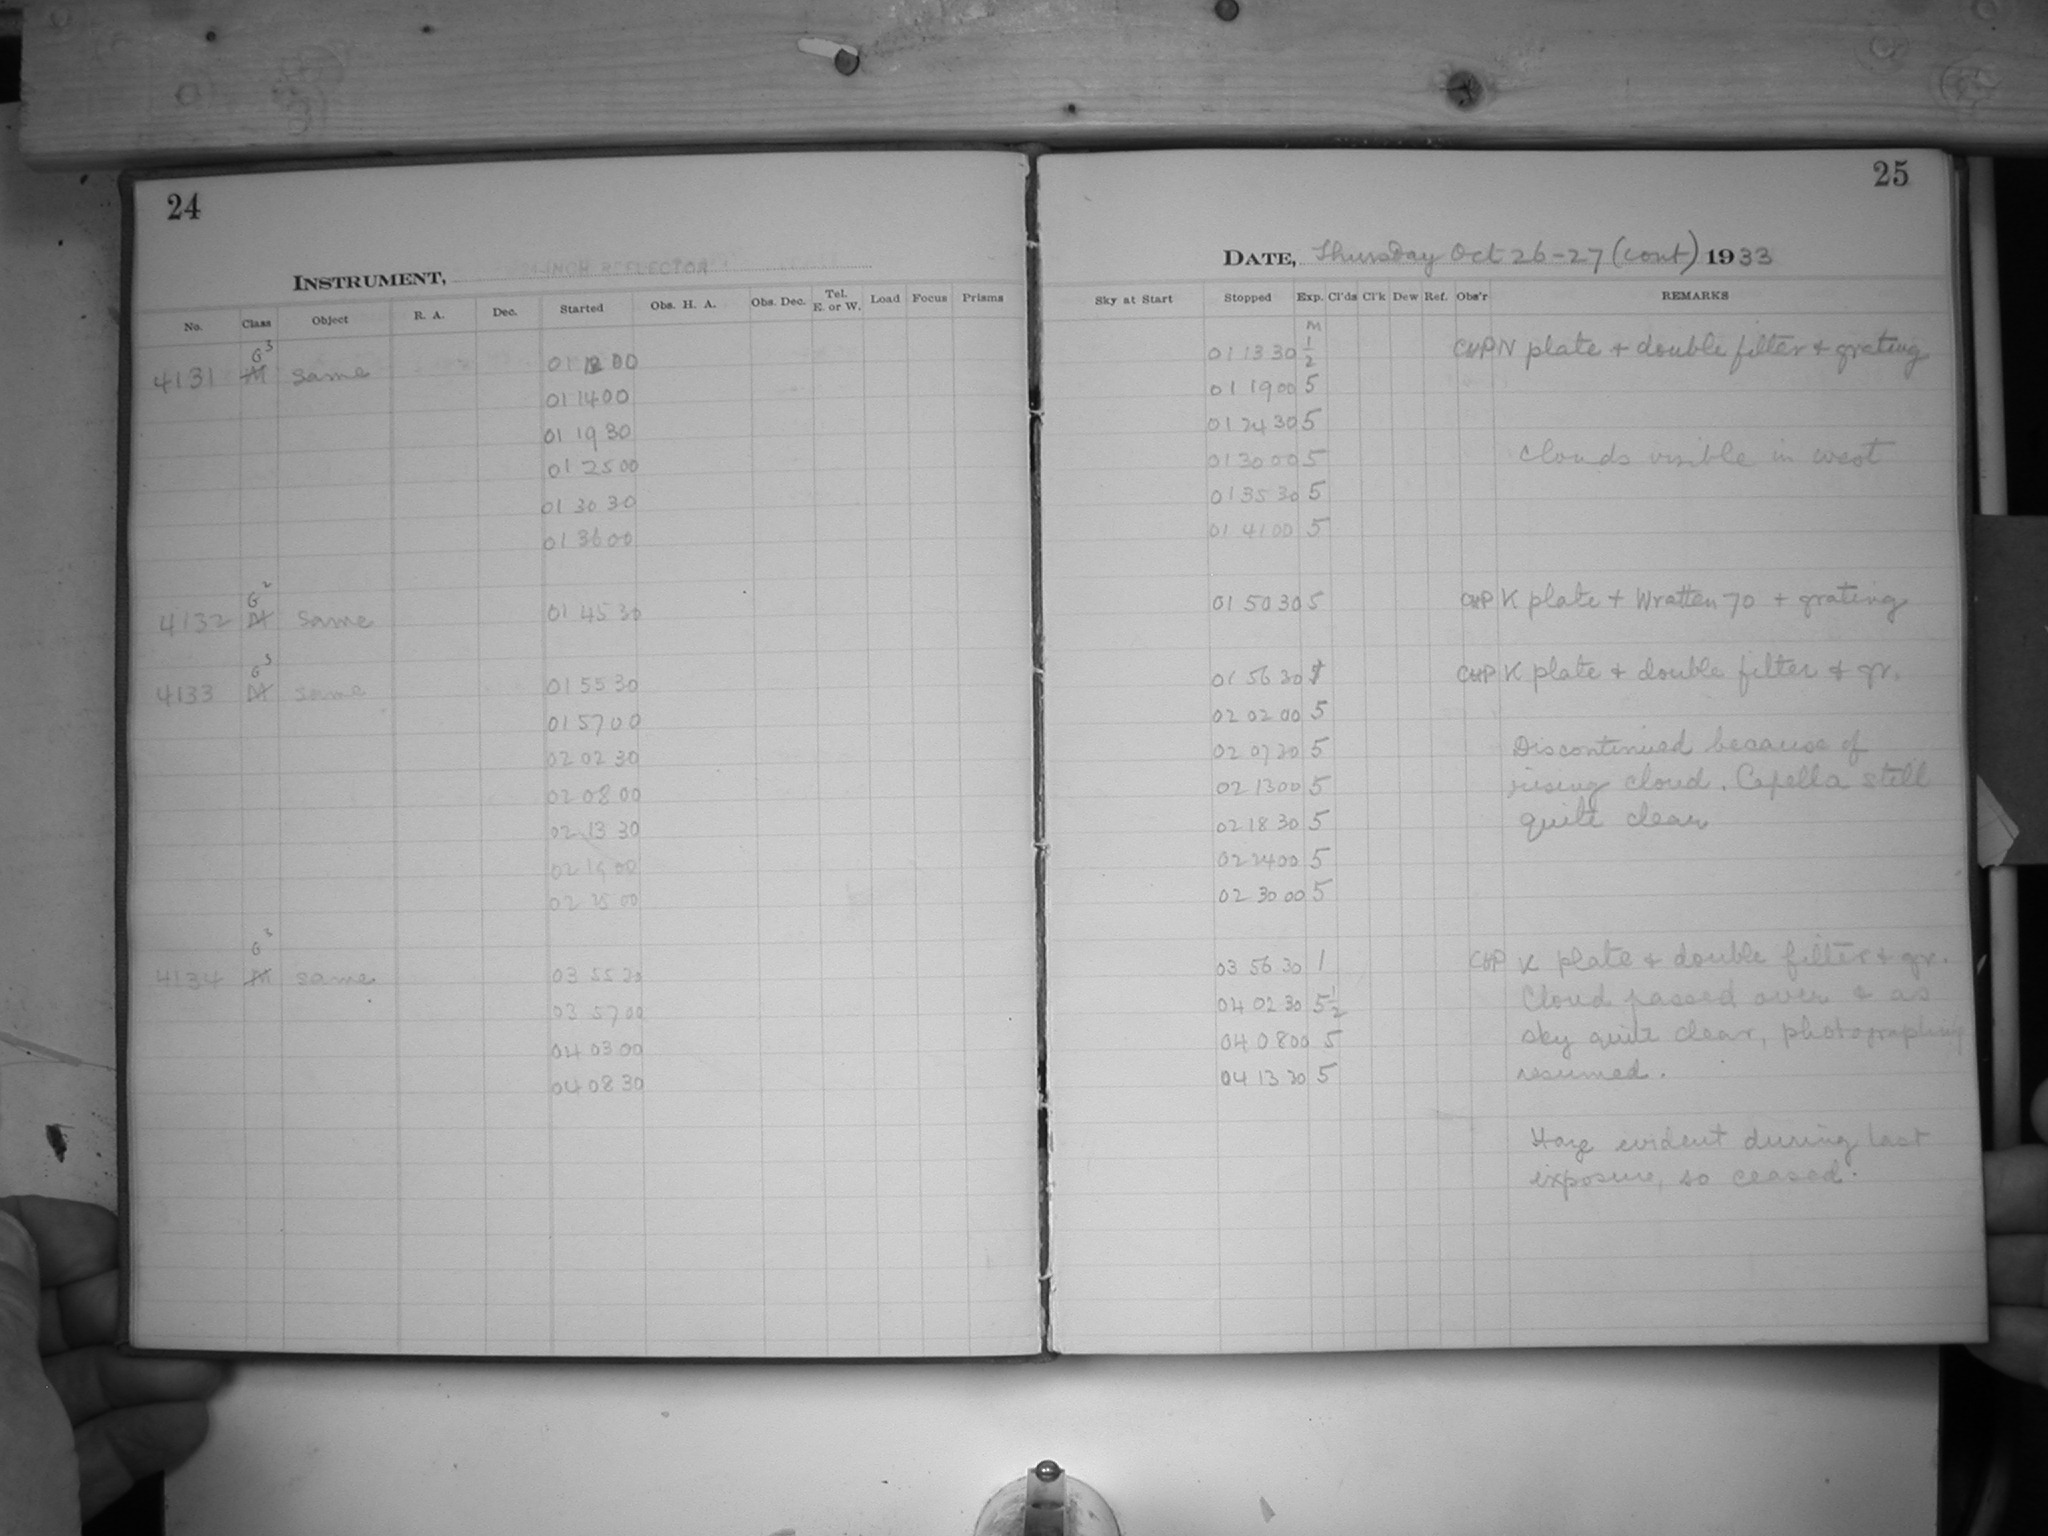 24
INSTRUMENT, INCH REFLECTOR
No. Class Object R. A. Dec. Started Obs. H. A. Obs. Dec. Tel. E. or W. Load Focus Prisms
4131 G3 M same 01 00
01 14 00
01 19 30
01 25 00
01 30 30
01 36 00
4132 G2 M same 01 45 30
4133 G3 M same 01 55 30
01 57 00
02 02 30
02 08 00
02 13 30
02 00
02 25 00
4134 G3 M same 03 55 30
03 57 00
04 03 00
04 08 30
25
DATE, Thursday Oct 26-27 (cont) 1933
Sky at Start Stopped Exp. Cl'ds Cl'k Dew Ref. Obs'r REMARKS
M
01 13 30 1/2 CHP N plate + double filter + grating
01 19 00 5
01 24 30 5
01 30 00 5 Clouds visible in west
01 35 30 5
01 41 00 5
01 50 30 5 CHP K plate + Wratten 70 + grating
01 56 30 1 CHP K plate + double filter + gr.
02 02 00 5
02 07 30 5 Discontinued because of
02 13 00 5 rising cloud. Capella still
02 18 30 5 quite clear
02 24 00 5
02 30 00 5
03 56 30 1 CHP K plate + double filter + gr.
04 02 30 5 1/2 Cloud passed over & as
04 08 00 5 sky quite clear, photographing
04 13 30 5 resumed.
Haze evident during last
exposure, so ceased.